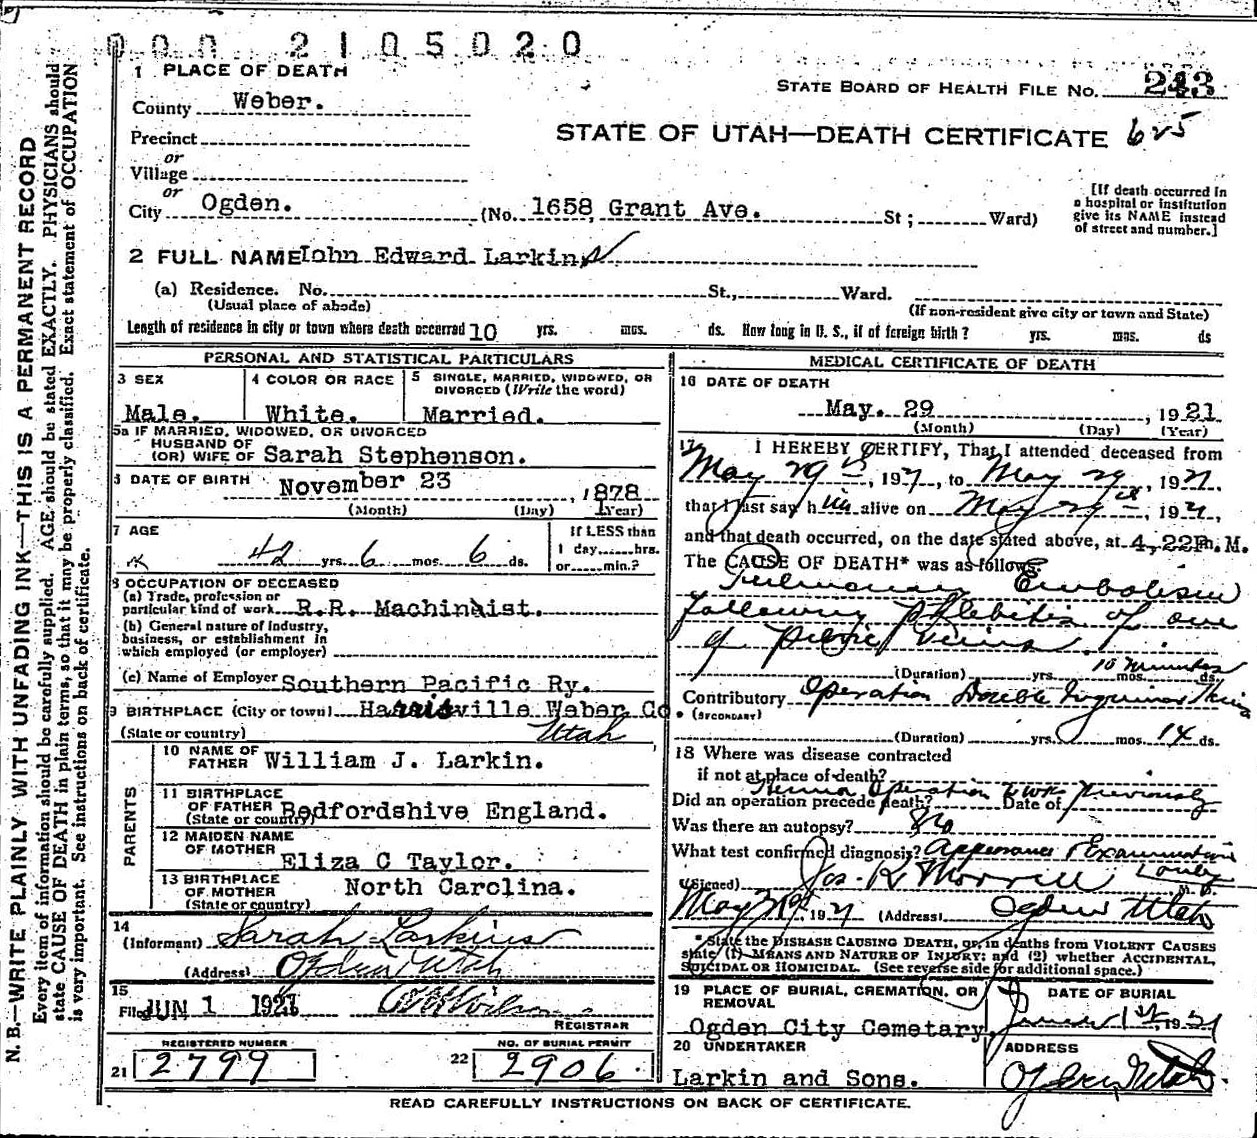 000 2105020
1 PLACE OF DEATH
STATE BOARD OF HEALTH FILE NO. 243
County Weber.
STATE OF UTAH—DEATH CERTIFICATE 625
Precinct
or
Village
or
City Ogden. (No. 1658 Grant Ave. St; Ward)
[If death occurred in
a hospital or institution
give its NAME instead
of street and number.]
2 FULL NAME Iohn Edward Larkin
(a) Residence. No. St., Ward.
(Usual place of abode) (If non-resident give city or town and State)
Length of residence in city or town where death occurred 10 yrs. mos. ds. How long in U. S., if of foreign birth? yrs. mos. ds
PERSONAL AND STATISTICAL PARTICULARS
3 SEX
Male.
4 COLOR OR RACE
White.
5 SINGLE, MARRIED, WIDOWED, OR
DIVORCED (Write the word)
Married.
5a IF MARRIED, WIDOWED, OR DIVORCED
HUSBAND OF
(OR) WIFE OF Sarah Stephenson.
6 DATE OF BIRTH November 23, 1878
(Month) (Day) (Year)
7 AGE
42 yrs. 6 mos. 6 ds.
If LESS than
1 day......hrs.
or......min.?
8 OCCUPATION OF DECEASED
(a) Trade, profession or
particular kind of work R.R. Machinist.
(b) General nature of industry,
business, or establishment in
which employed (or employer)
(c) Name of Employer Southern Pacific Ry.
9 BIRTHPLACE (City or town) Harrisville Weber Co.
(State or country) Utah
PARENTS
10 NAME OF
FATHER William J. Larkin.
11 BIRTHPLACE
OF FATHER
(State or country) Bedfordshive England.
12 MAIDEN NAME
OF MOTHER
Eliza C Taylor.
13 BIRTHPLACE
OF MOTHER North Carolina.
(State or country)
14
(Informant) Sarah Larkins
(Address) Ogden Utah
15
Filed JUN 1 1921
REGISTRAR
REGISTERED NUMBER
21 2799
NO. OF BURIAL PERMIT
22 2906
MEDICAL CERTIFICATE OF DEATH
16 DATE OF DEATH
May. 29, 1921
(Month) (Day) (Year)
17 I HEREBY CERTIFY, That I attended deceased from
May 29th, 1921, to May 29, 1921,
that I last saw him alive on May 29th, 1921,
and that death occurred, on the date stated above, at 4.22P. M.
The CAUSE OF DEATH* was as follows:
Pulmonary Embolism
following phlebitis of one
of pelvic veins.
(Duration) yrs. mos. ds. 10 minutes
Contributory Operation Double Inguinal Hernia
(SECONDARY)
(Duration) yrs. mos. 14 ds.
18 Where was disease contracted
if not at place of death?
Hernia Operation 2 wks previously
Did an operation precede death? Date of
Was there an autopsy? No
What test confirmed diagnosis? Appearance & Examination
only
(Signed) Jos. R Morrell M. D.
May 31st, 1921 (Address) Ogden Utah
*State the DISEASE CAUSING DEATH, or, in deaths from VIOLENT CAUSES
state (1) MEANS AND NATURE OF INJURY; and (2) whether ACCIDENTAL,
SUICIDAL OR HOMICIDAL. (See reverse side for additional space.)
19 PLACE OF BURIAL, CREMATION, OR
REMOVAL
Ogden City Cemetary
DATE OF BURIAL
June 1st, 1921
20 UNDERTAKER
Larkin and Sons.
ADDRESS
Ogden, Utah
READ CAREFULLY INSTRUCTIONS ON BACK OF CERTIFICATE.
N. B.—WRITE PLAINLY WITH UNFADING INK—THIS IS A PERMANENT RECORD
Every item of information should be carefully supplied. AGE should be stated EXACTLY. PHYSICIANS should
state CAUSE OF DEATH in plain terms, so that it may be properly classified. Exact statement of OCCUPATION
is very important. See instructions on back of certificate.